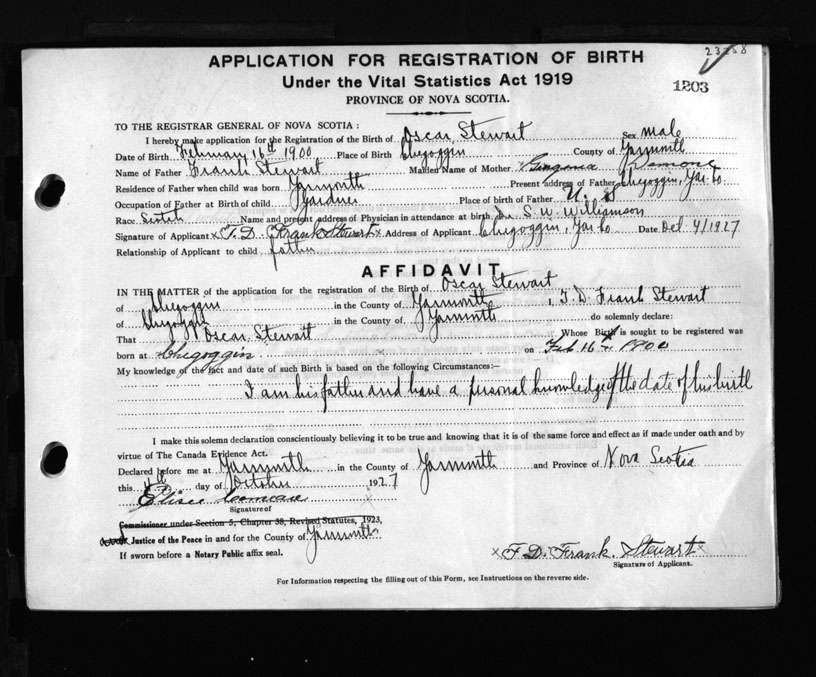 23258
APPLICATION FOR REGISTRATION OF BIRTH
Under the Vital Statistics Act 1919
1203
PROVINCE OF NOVA SCOTIA.
TO THE REGISTRAR GENERAL OF NOVA SCOTIA :
I hereby make application for the Registration of the Birth of Oscar Stewart Sex male
Date of Birth February 16th 1900 Place of Birth Chegoggin County of Yarmouth
Name of Father Frank Stewart Maiden Name of Mother
Residence of Father when child was born Yarmouth Present address of Father Chegoggin, Yar. Co
Occupation of Father at Birth of child Gardner Place of birth of Father
Race Scotch Name and present address of Physician in attendance at birth Dr. S. W. Williamson
Signature of Applicant x F. D. Frank Stewart x Address of Applicant Chegoggin, Yar. Co Date Oct 4/1927
Relationship of Applicant to child father
AFFIDAVIT
IN THE MATTER of the application for the registration of the Birth of Oscar Stewart
of Chegoggin in the County of Yarmouth , I, D. Frank Stewart
of Chegoggin in the County of Yarmouth do solemnly declare:
That Oscar Stewart Whose Birth is sought to be registered was
born at Chegoggin on Feb 16th 1900
My knowledge of the fact and date of such Birth is based on the following Circumstances:—
I am his father and have a personal knowledge of the date of his birth
I make this solemn declaration conscientiously believing it to be true and knowing that it is of the same force and effect as if made under oath and by
virtue of The Canada Evidence Act.
Declared before me at Yarmouth in the County of Yarmouth and Province of Nova Scotia
this 4th day of October 1927
Signature of
Commissioner under Section 5, Chapter 38, Revised Statutes, 1923,
Justice of the Peace in and for the County of Yarmouth
If sworn before a Notary Public affix seal.
x F. D. Frank Stewart x
Signature of Applicant.
For Information respecting the filling out of this Form, see Instructions on the reverse side.